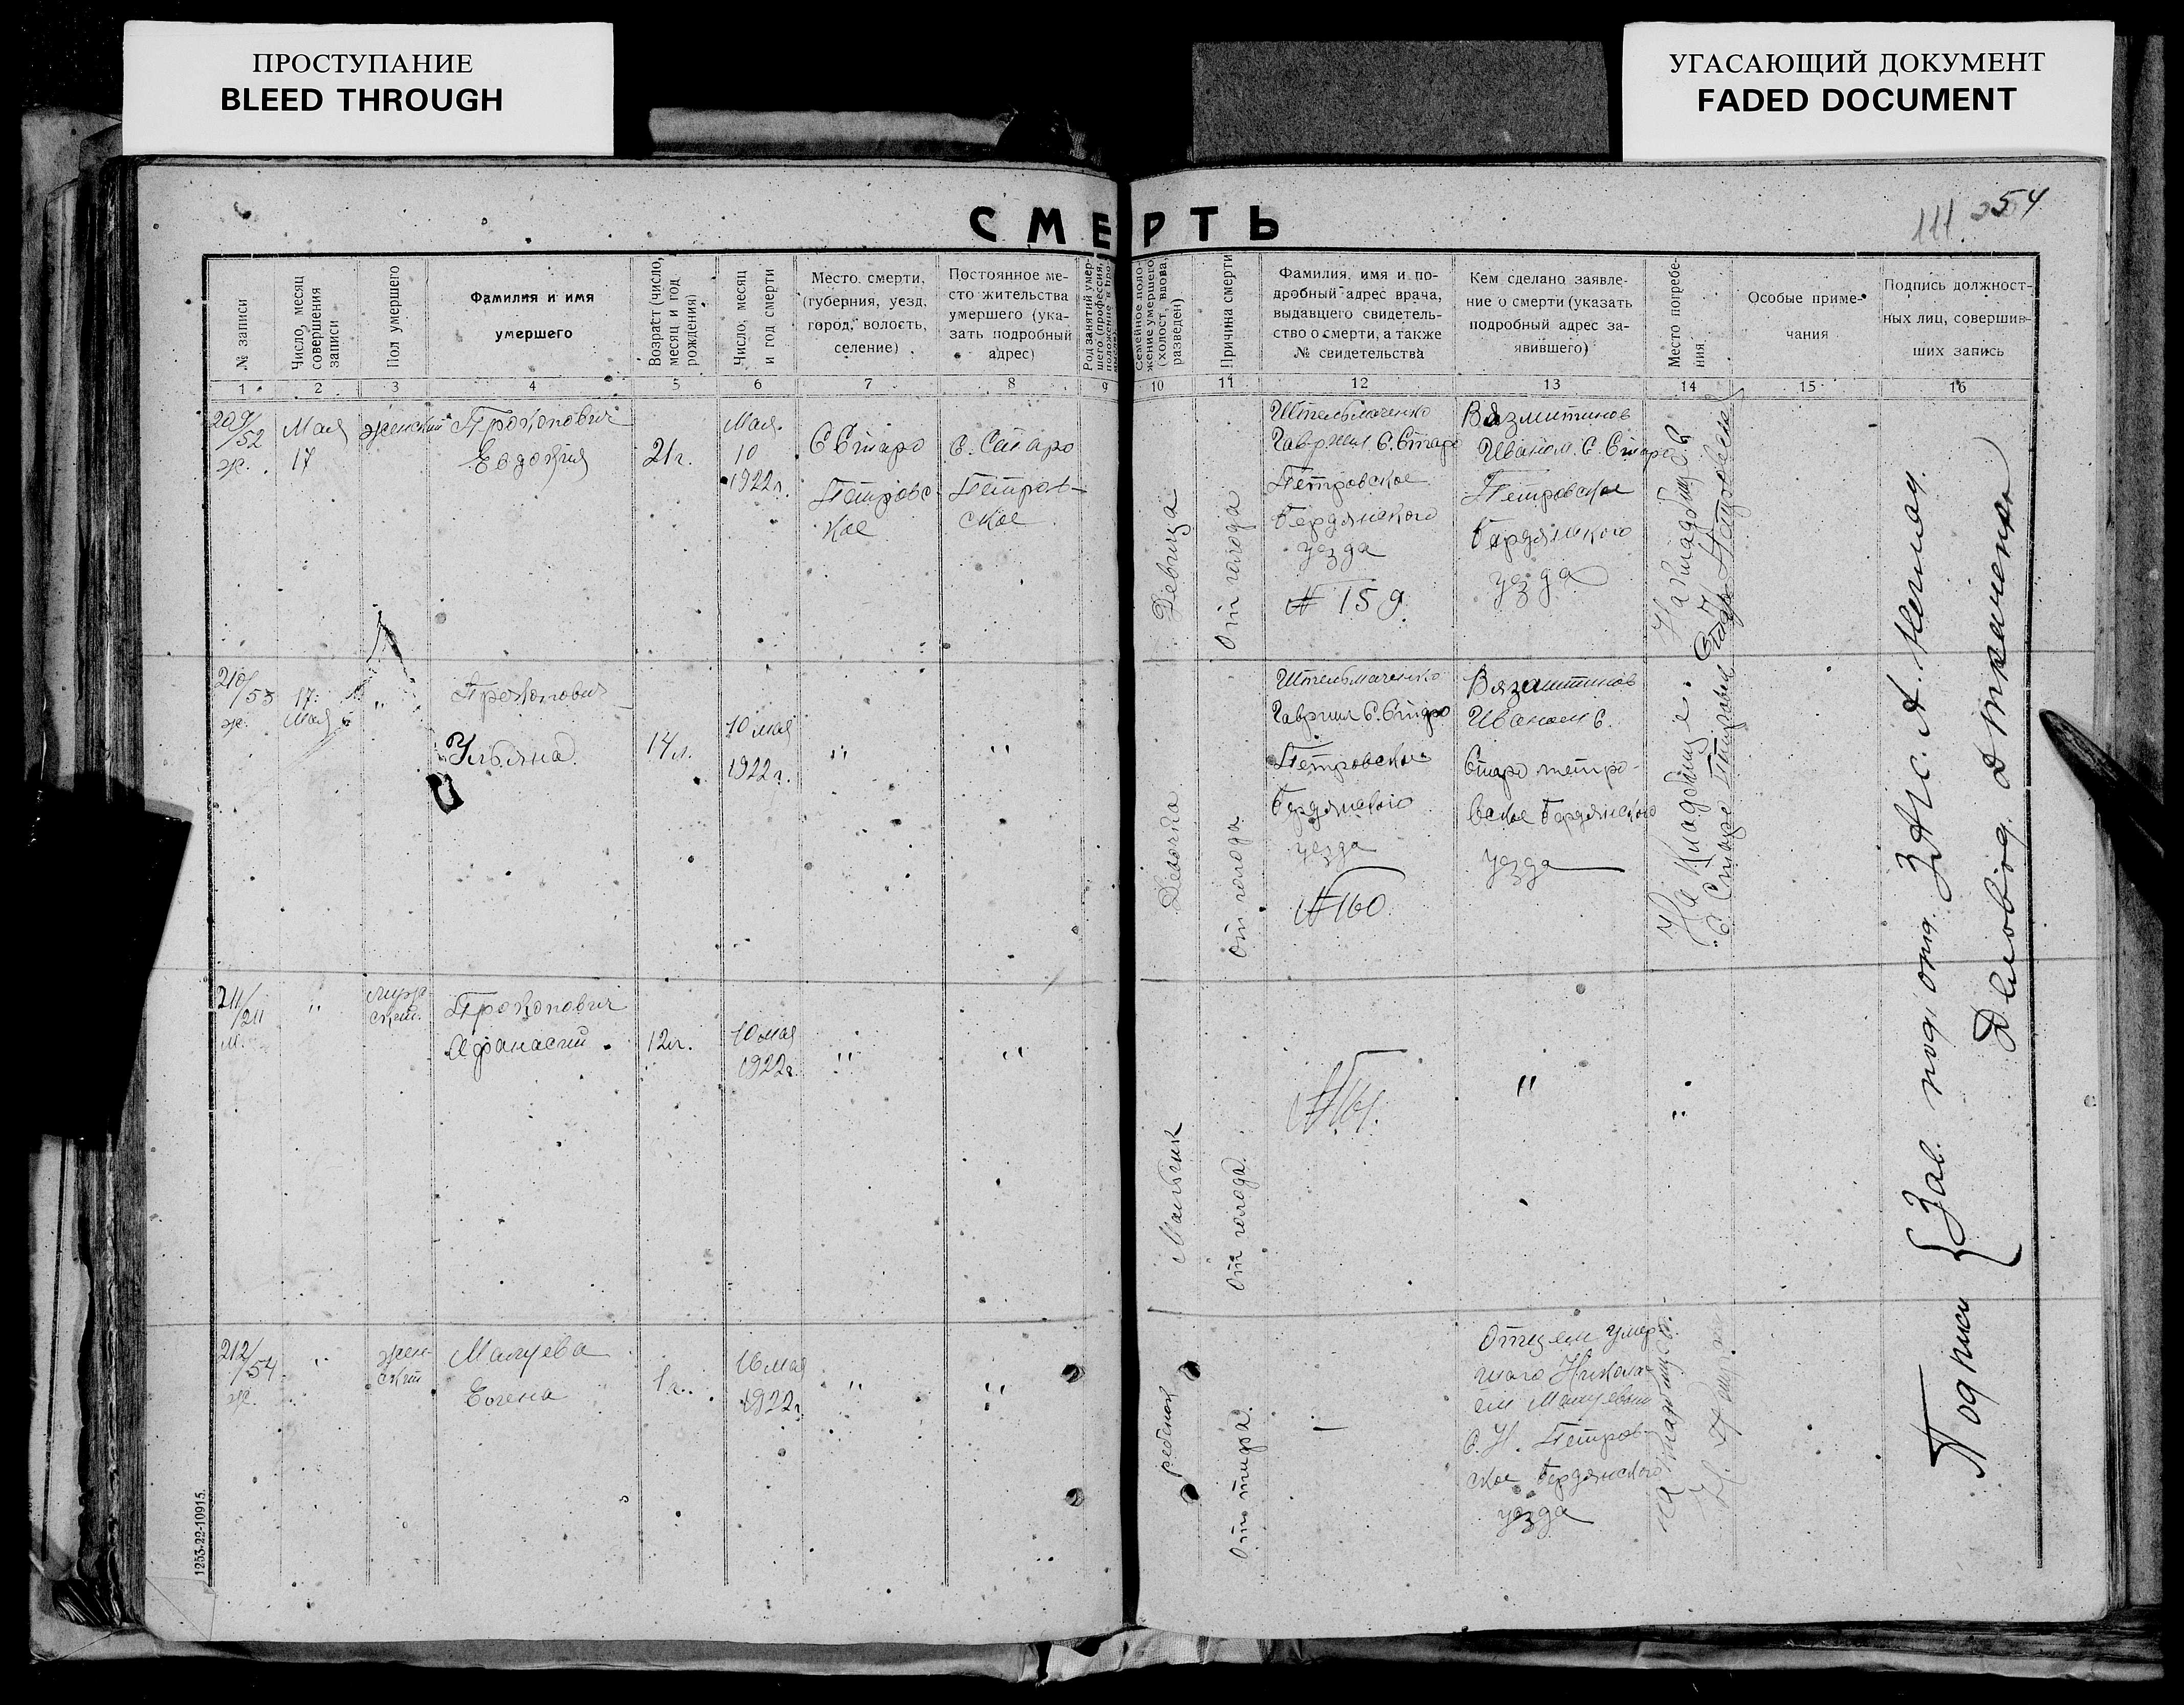 ПРОСТУПАНИЕ
BLEED THROUGH
УГАСАЮЩИЙ ДОКУМЕНТ
FADED DOCUMENT
111
54
СМЕРТЬ
№ записи
Число, месяц совершения записи
Пол умершего
Фамилия и имя
умершего
Возраст (число, месяц и год рождения)
Число, месяц и год смерти
Место смерти,
(губерния, уезд,
город, волость,
селение)
Постоянное ме-
сто жительства
умершего (ука-
зать подробный
адрес)
Род занятий умер-
шего (профессия,
положение в про-
Семейное поло-
жение умершего
(холост, вдова,
разведен)
Причина смерти
Фамилия, имя и по-
дробный адрес врача,
выдавшего свидетель-
ство о смерти, а также
№ свидетельства
Кем сделано заявле-
ние о смерти (указать
подробный адрес за-
явившего)
Место погребе-
ния
Особые приме-
чания
Подпись должност-
ных лиц, совершив-
ших запись
1 2 3 4 5 6 7 8 9 10 11 12 13 14 15 16
209/52
ж.
Мая
17
женский
Прокопович
Евдокия
21г.
Мая.
10
1922г.
С Старо
Петровс
кое
С. Старо
Петров-
ское
Девица
От голода
Штельмаченко
Гавриил С. Старо
Петровское
Бердянского
уезда
№ 159
Вязмитинов
Иваном. С. Старо
Петровское
Бердянского
уезда
На кладбище С.
Старо Петровское
210/53
ж.
17.
Мая
"
Прокопович
Ульяна
14л.
10 мая
1922г.
"
"
Девочка
От голода
Штельмаченко
Гавриил С. Старо
Петровское
Бердянского
уезда
№ 160
Вязмитинов
Иваном С.
Старо петро-
вское Бердянского
уезда
На Кладбище.
С. Старо Петровское
211/211
м.
"
мужс
ской.
Прокопович
Афанасий.
12л.
10 мая
1922г.
"
"
Мальчик
От голода.
№ 161.
"
"
212/54
ж.
"
жен-
ский
Мацуева
Елена
1г.
16 мая
1922г.
"
"
ребенок
От тифа.
—
Отцем умер
шаго Никола
ем Мацуевым
С. Н. Петров-
ское Бердянского
уезда
на кладбище С.
Подписи { Зав. под. отд. ЗАГС. А.
Деловод. Д Ткаченко
1253-22-10915.